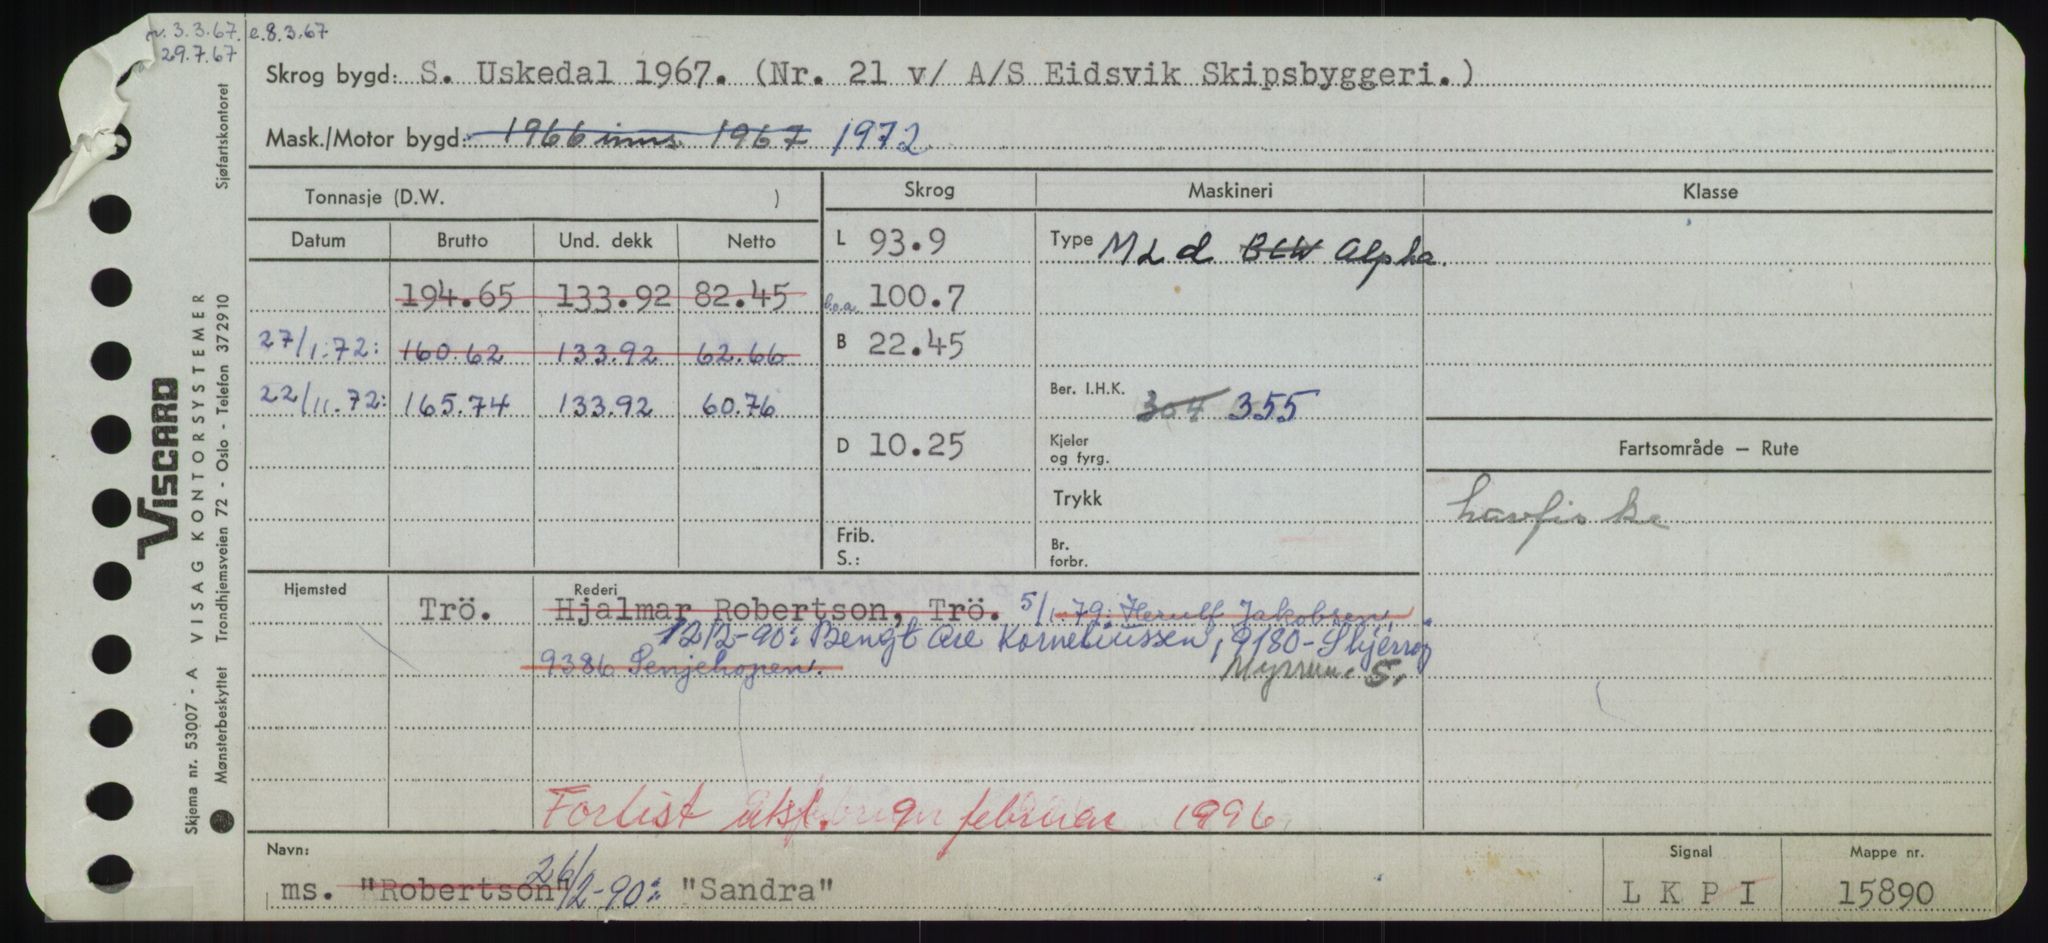 v. 3.3.67. e.8.3.67
29.7.67
Skrog bygd: S. Uskedal 1967. (Nr. 21 v/ A/S Eidsvik Skipsbyggeri.)
Mask./Motor bygd: 1966 inns. 1967 1972
Tonnasje (D.W. )
Skrog
Maskineri
Klasse
Datum Brutto Und. dekk Netto
L 93.9
Type M 2 d B&W Alpha.
194.65 133.92 82.45
l.o.a. 100.7
27/1-72: 160.62 133.92 62.66
B 22.45
22/11.72: 165.74 133.92 60.76
Ber. I.H.K. 304 355
D 10.25
Kjeler
og fyrg.
Fartsområde — Rute
Trykk
havfiske
Frib.
S.:
Br.
forbr.
Hjemsted
Rederi
Trö. Hjalmar Robertson, Trö. 5/1-79: Herulf Jakobsen,
12/2-90: Bengt Are Korneliussen, 9180-Skjervøy
9386 Senjehopen.
S.
Forlist februar 1996
Navn:
ms. "Robertson" 26/2-90: "Sandra"
Signal
L K P I
Mappe nr.
15890
VISCARD
VISAG KONTORSYSTEMER
Skjema nr. 53007 - A
Mønsterbeskyttet Trondhjemsveien 72 - Oslo - Telefon 372910 Sjøfartskontoret